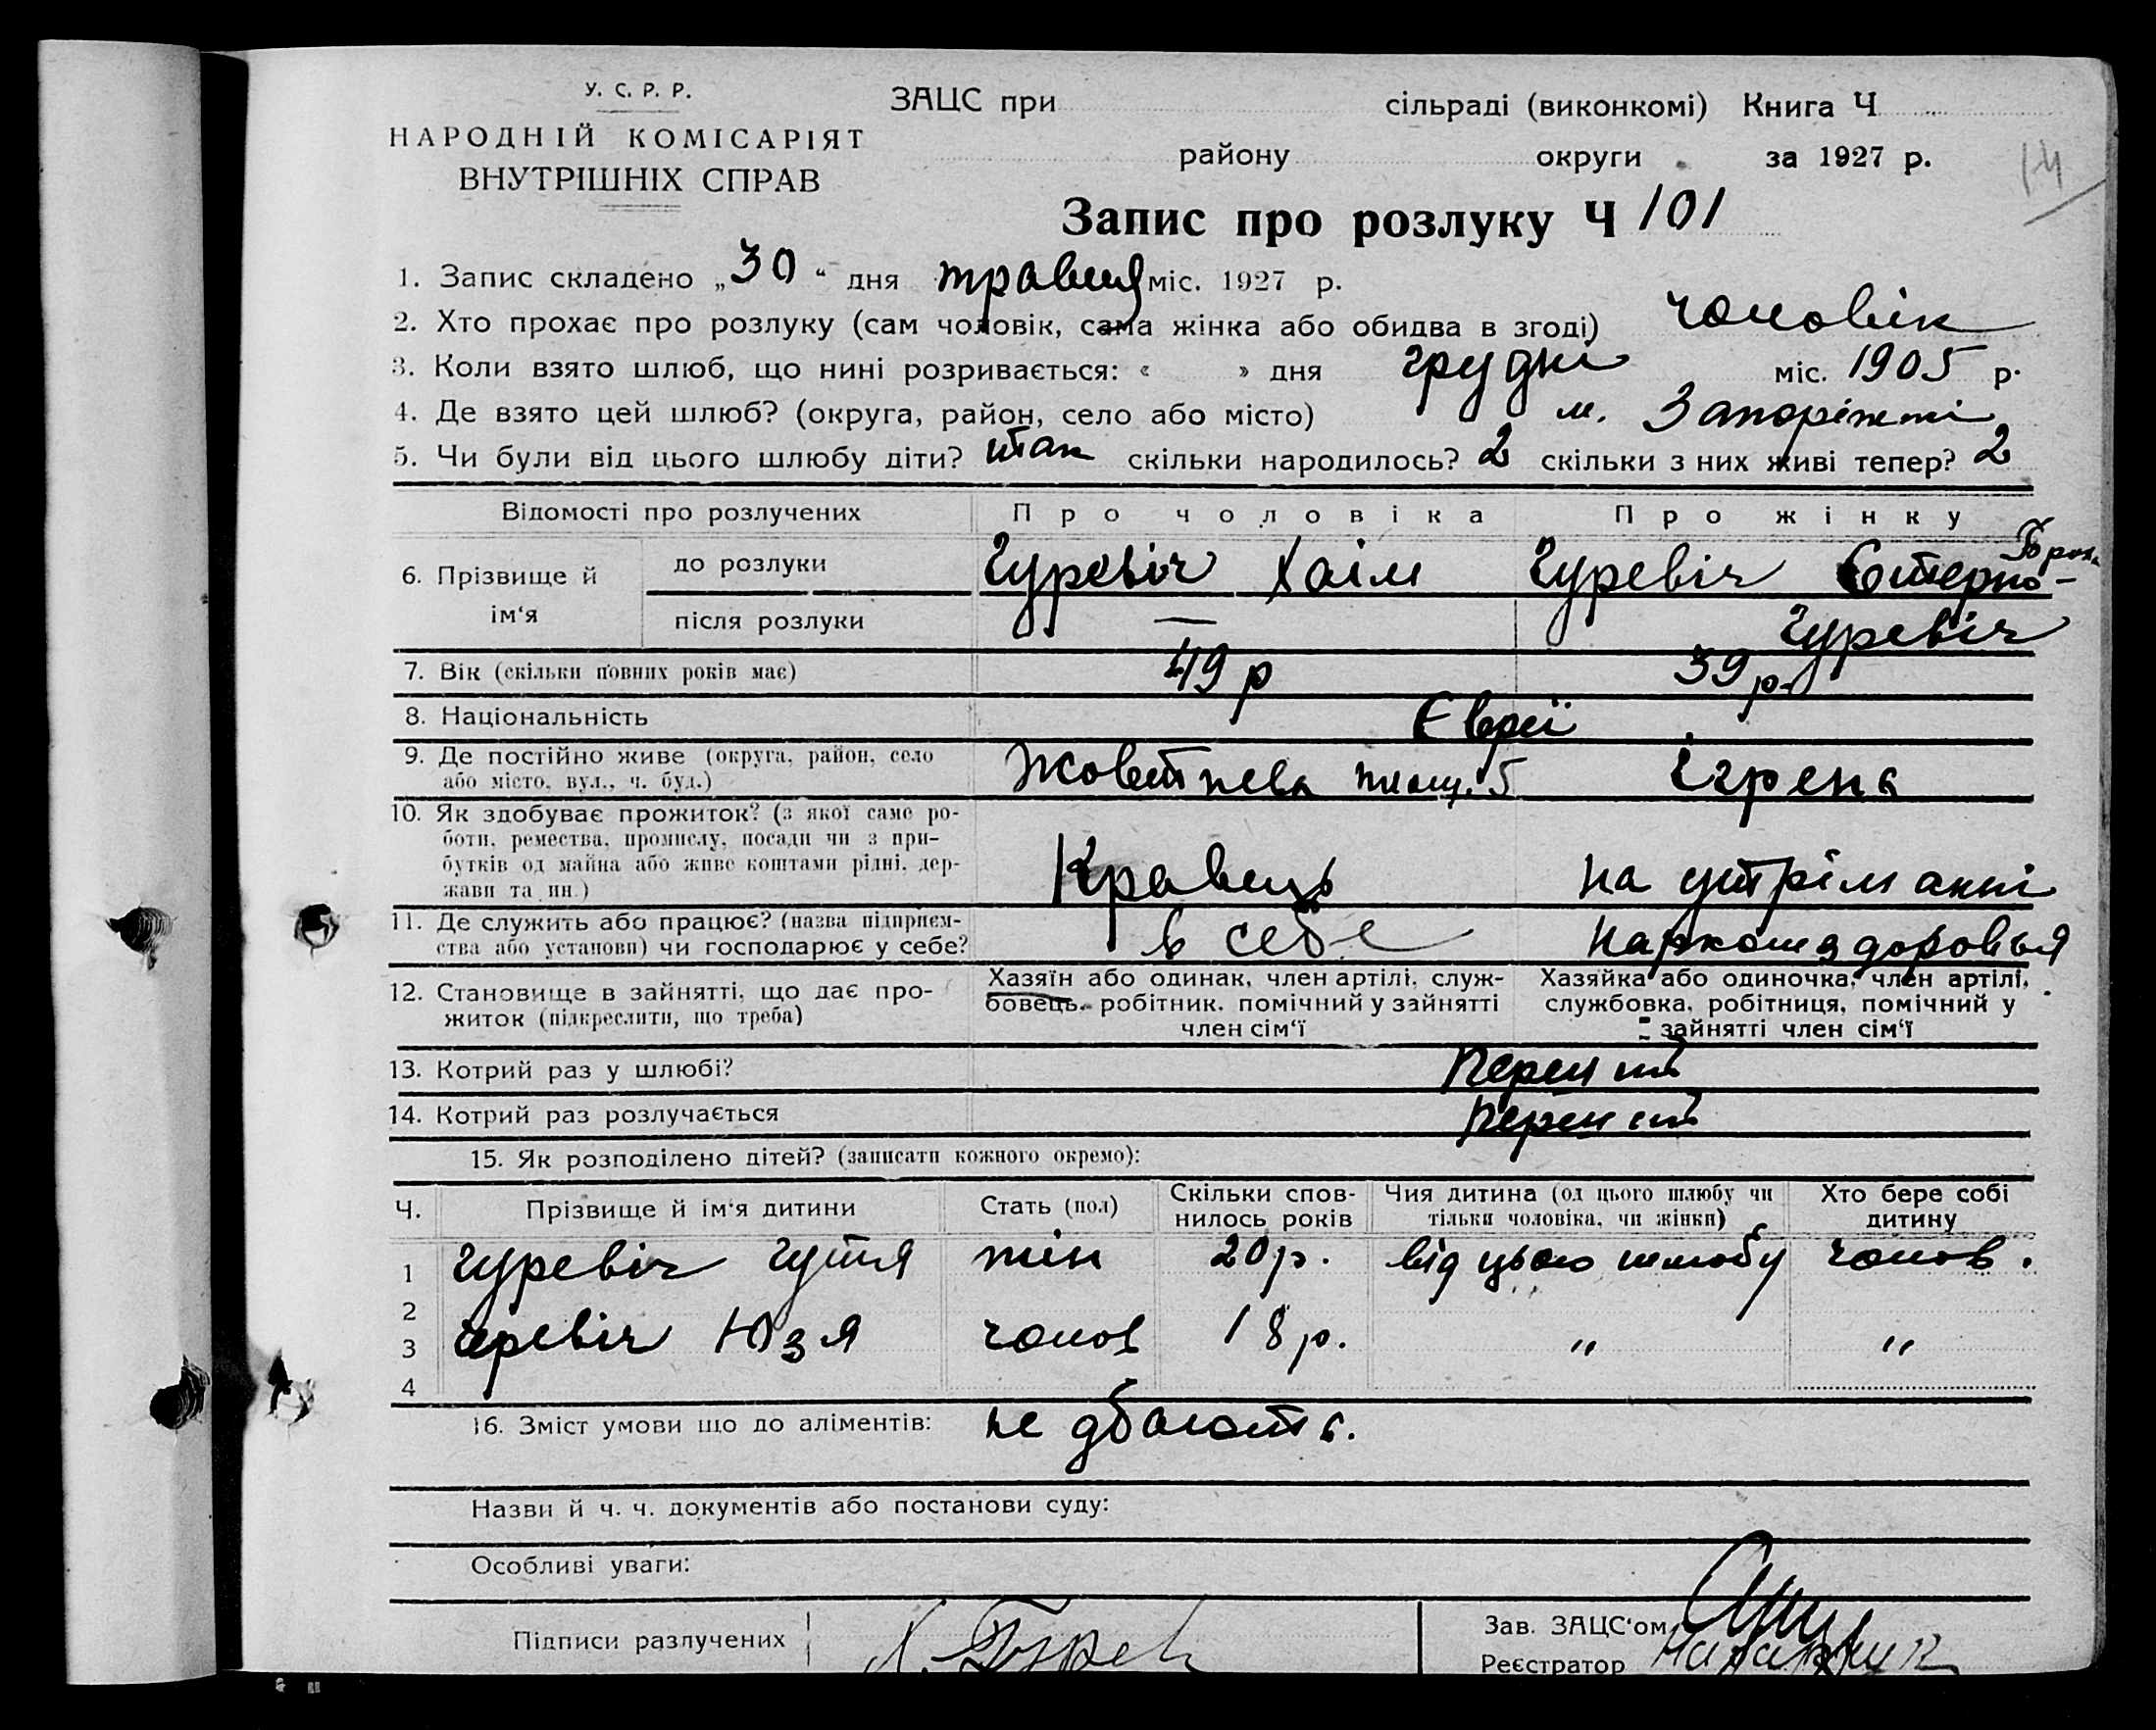 У. С. Р. Р.
НАРОДНІЙ КОМІСАРІЯТ
ВНУТРІШНІХ СПРАВ
ЗАЦС при сільраді (виконкомі) Книга Ч
району округи за 1927 р.
14
Запис про розлуку Ч 101
1. Запис складено „30“ дня травня міс. 1927 р.
2. Хто прохає про розлуку (сам чоловік, сама жінка або обидва в згоді) чоловік
3. Коли взято шлюб, що нині розривається: « » дня грудні міс. 1905 р.
4. Де взято цей шлюб? (округа, район, село або місто) м. Запоріжжі
5. Чи були від цього шлюбу діти? так скільки народилось? 2 скільки з них живі тепер? 2
Відомості про розлучених Про чоловіка Про жінку
6. Прізвище й ім‘я до розлуки Гуревіч Хаім Гуревіч
після розлуки — Гуревіч
7. Вік (скільки повних років має) 49 р 39 р.
8. Національність Євреї
9. Де постійно живе (округа, район, село
або місто, вул., ч. буд.) Жовтнева площ. 5 Ігрень
10. Як здобуває прожиток? (з якої саме ро-
боти, ремества, промислу, посади чи з при-
бутків од майна або живе коштами рідні, дер-
жави та ин.) Кравець на утріманні
11. Де служить або працює? (назва підприєм-
ства або установи) чи господарює у себе? в себе наркомздоровья
12. Становище в зайнятті, що дає про-
житок (підкреслити, що треба)
Хазяїн або одинак, член артілі, служ-
бовець, робітник, помічний у зайнятті
член сім‘ї
Хазяйка або одиночка, член артілі,
службовка, робітниця, помічний у
зайнятті член сім‘ї
13. Котрий раз у шлюбі? перший
14. Котрий раз розлучається перший
15. Як розподілено дітей? (записати кожного окремо):
Ч. Прізвище й ім‘я дитини Стать (пол) Скільки спов-
нилось років Чия дитина (од цього шлюбу чи
тільки чоловіка, чи жінки) Хто бере собі
дитину
1 Гуревіч Гутя жін 20 р. від цього шлюбу чолов.
2
3 Гуревіч Юзя чолов 18 р. " "
4
16. Зміст умови що до аліментів: не дбають.
Назви й ч. ч. документів або постанови суду:
Особливі уваги:
Підписи разлучених Х. Гурев
Зав. ЗАЦС‘ом
Реєстратор